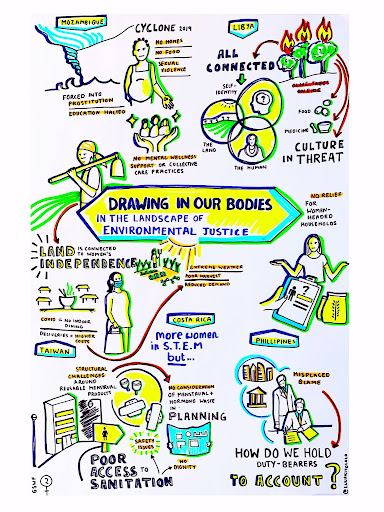 MOZAMBIQUE
CYCLONE 2019
NO HOMES
NO FOOD
SEXUAL
VIOLENCE
FORCED INTO
PROSTITUTION
EDUCATION HALTED
NO MENTAL WELLNESS
SUPPORT OR COLLECTIVE
CARE PRACTICES
LIBYA
ALL
CONNECTED
SELF-
IDENTITY
THE
LAND
THE HUMAN
FOOD
MEDICINE
CULTURE
IN THREAT
DRAWING IN OUR BODIES
IN THE LANDSCAPE OF
ENVIRONMENTAL JUSTICE
NO RELIEF
FOR
WOMAN-
HEADED
HOUSEHOLDS
LAND IS CONNECTED
TO WOMEN'S
INDEPENDENCE
EXTREME WEATHER
POOR HARVEST
REDUCED DEMAND
COVID = NO INDOOR
DINING
DELIVERIES = HIGHER
COSTS
TAIWAN
COSTA RICA
more women
in S.T.E.M
but...
STRUCTURAL
CHALLENGES
AROUND
REUSABLE MENSTRUAL
PRODUCTS
NO CONSIDERATION
OF MENSTRUAL +
HORMONE WASTE
IN
PLANNING
SAFETY
ISSUES
POOR
ACCESS TO
SANITATION
NO
DIGNITY
PHILLIPINES
MISPLACED
BLAME
HOW DO WE HOLD
DUTY-BEARERS
TO ACCOUNT?
GSWF
2